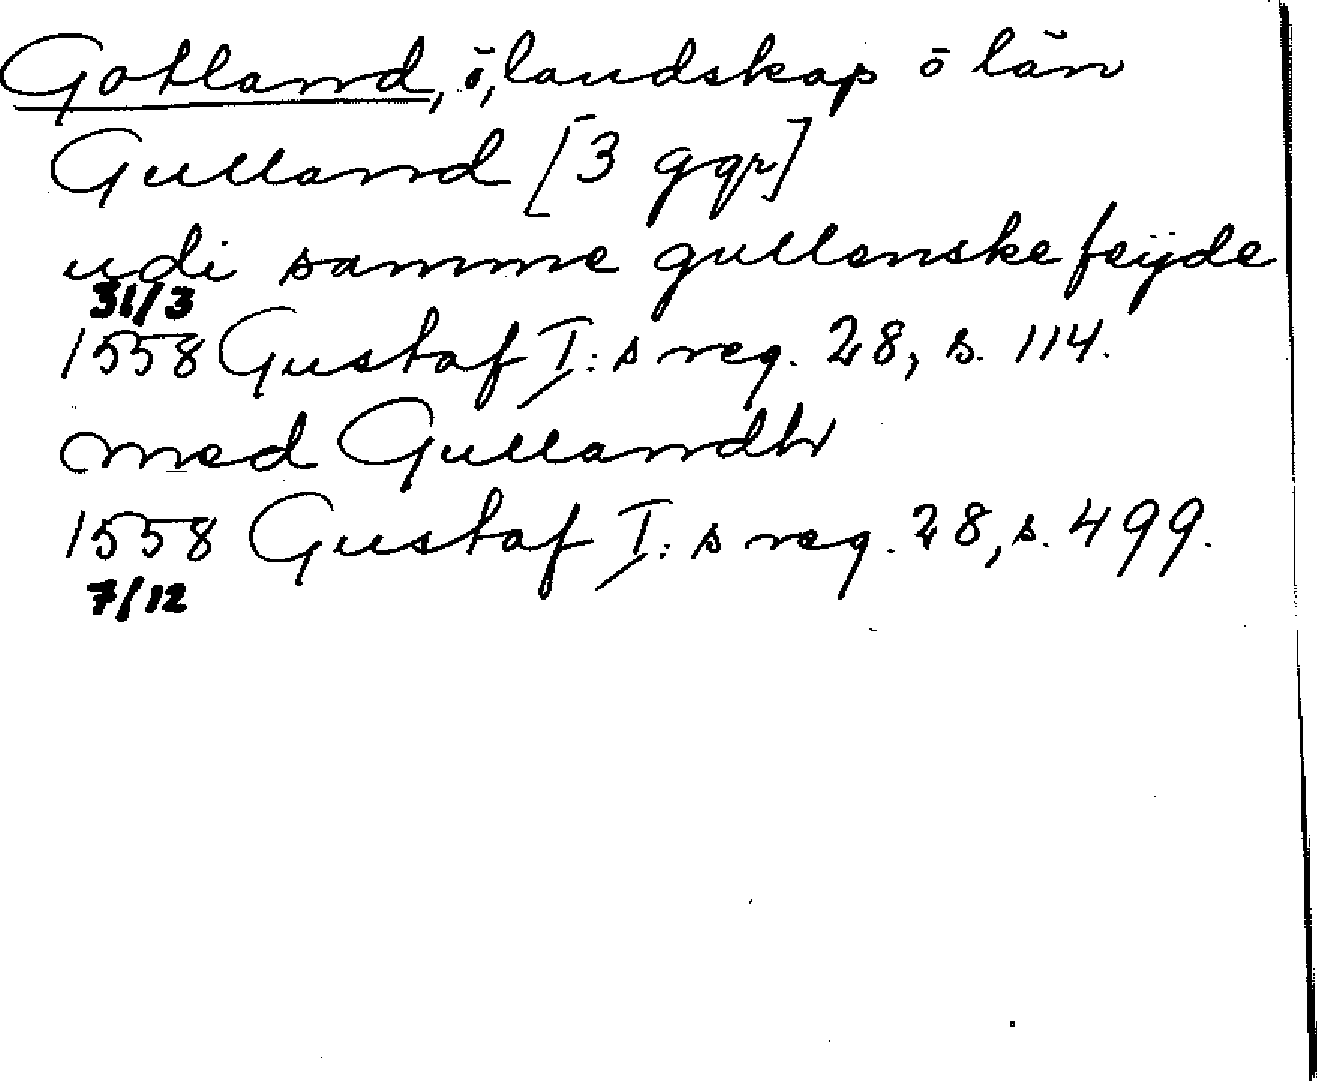 Gotland, ö, landskap o län
Gulland [3 ggr]
udi samme gullenske feyde
31/3
1558 Gustaf I:s reg. 28, s. 114.
med Gullandh
1558 Gustaf I:s reg. 28, s. 499.
7/12